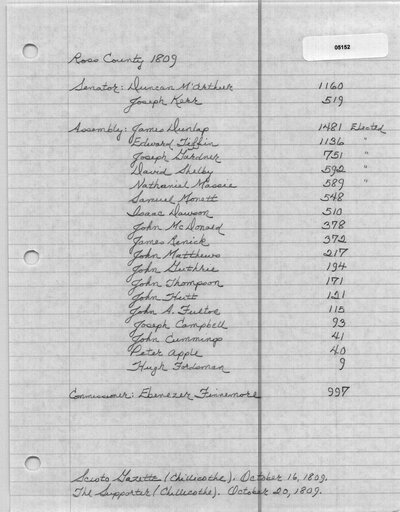 05152
Ross County 1809
Senator: Duncan McArthur 1160
Joseph Kerr 519
Assembly: James Dunlap 1481 Elected
Edward Tiffin 1136 "
Joseph Gardner 751 "
David Shelby 592 "
Nathaniel Massie 589 "
Samuel Monett 548
Isaac Dawson 510
John McDonald 378
James Renick 372
John Matthews 217
John Guthrie 194
John Thompson 171
John Hutt 121
John A. Fulton 115
Joseph Campbell 93
John Cummings 41
Peter Apple 40
Hugh Fordsman 9
Commissioner: Ebenezer Finnemore 997
Scioto Gazette (Chillicothe). October 16, 1809.
The Supporter (Chillicothe). October 20, 1809.